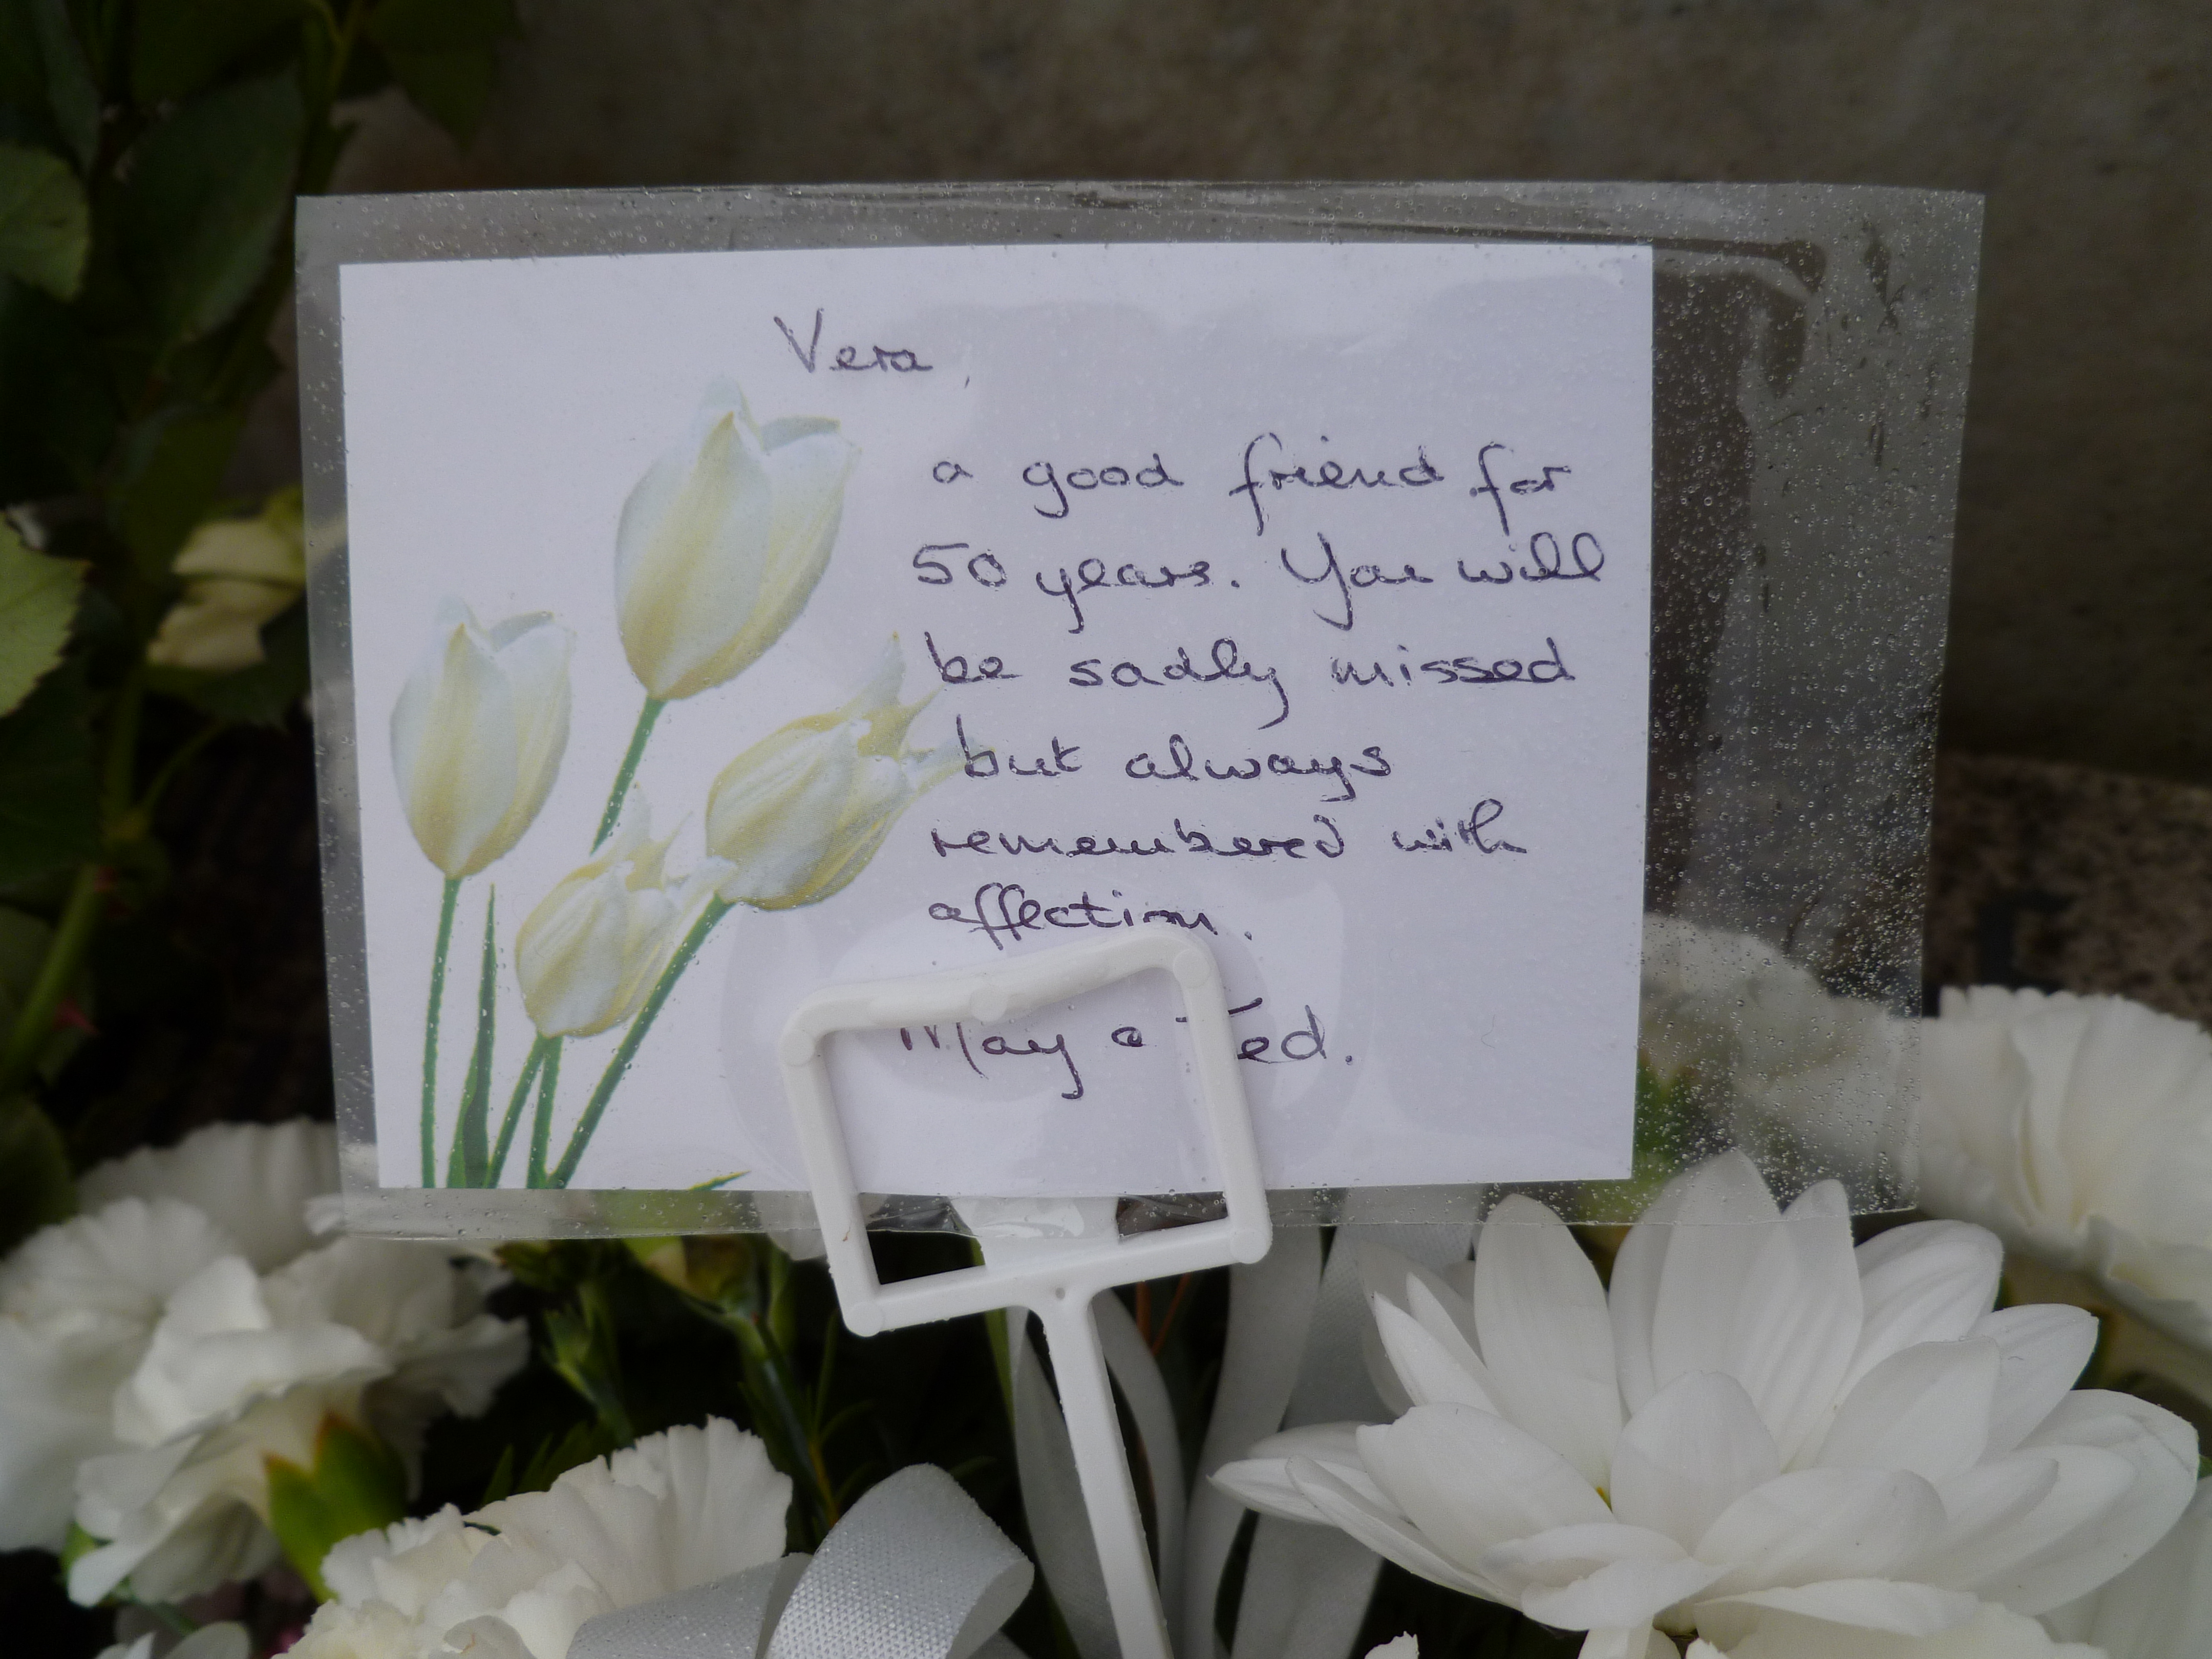 Vera,
a good friend for
50 years. You will
be sadly missed
but always
remembered with
affection.
May & Ted.